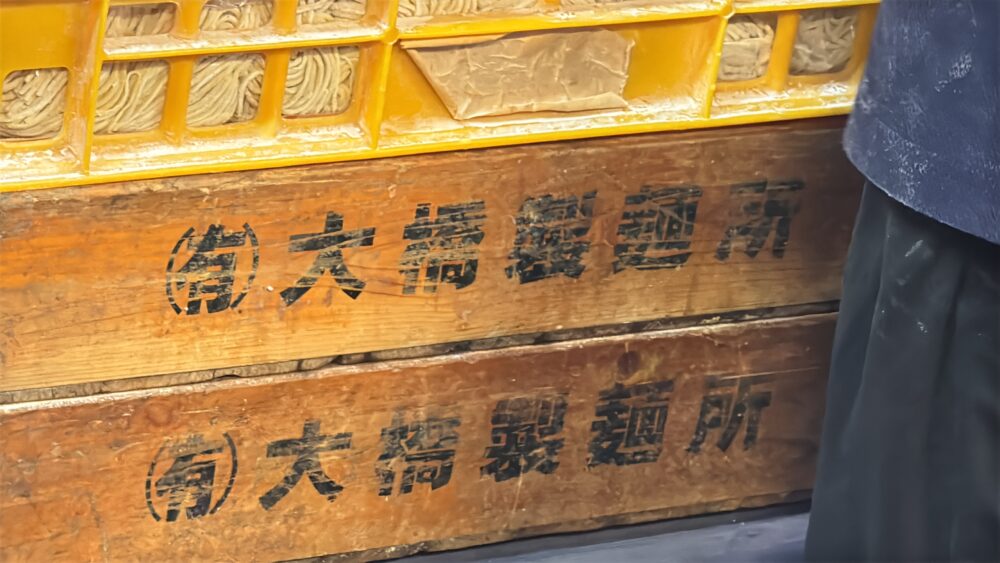 (有)大橋製麺所
(有)大橋製麺所